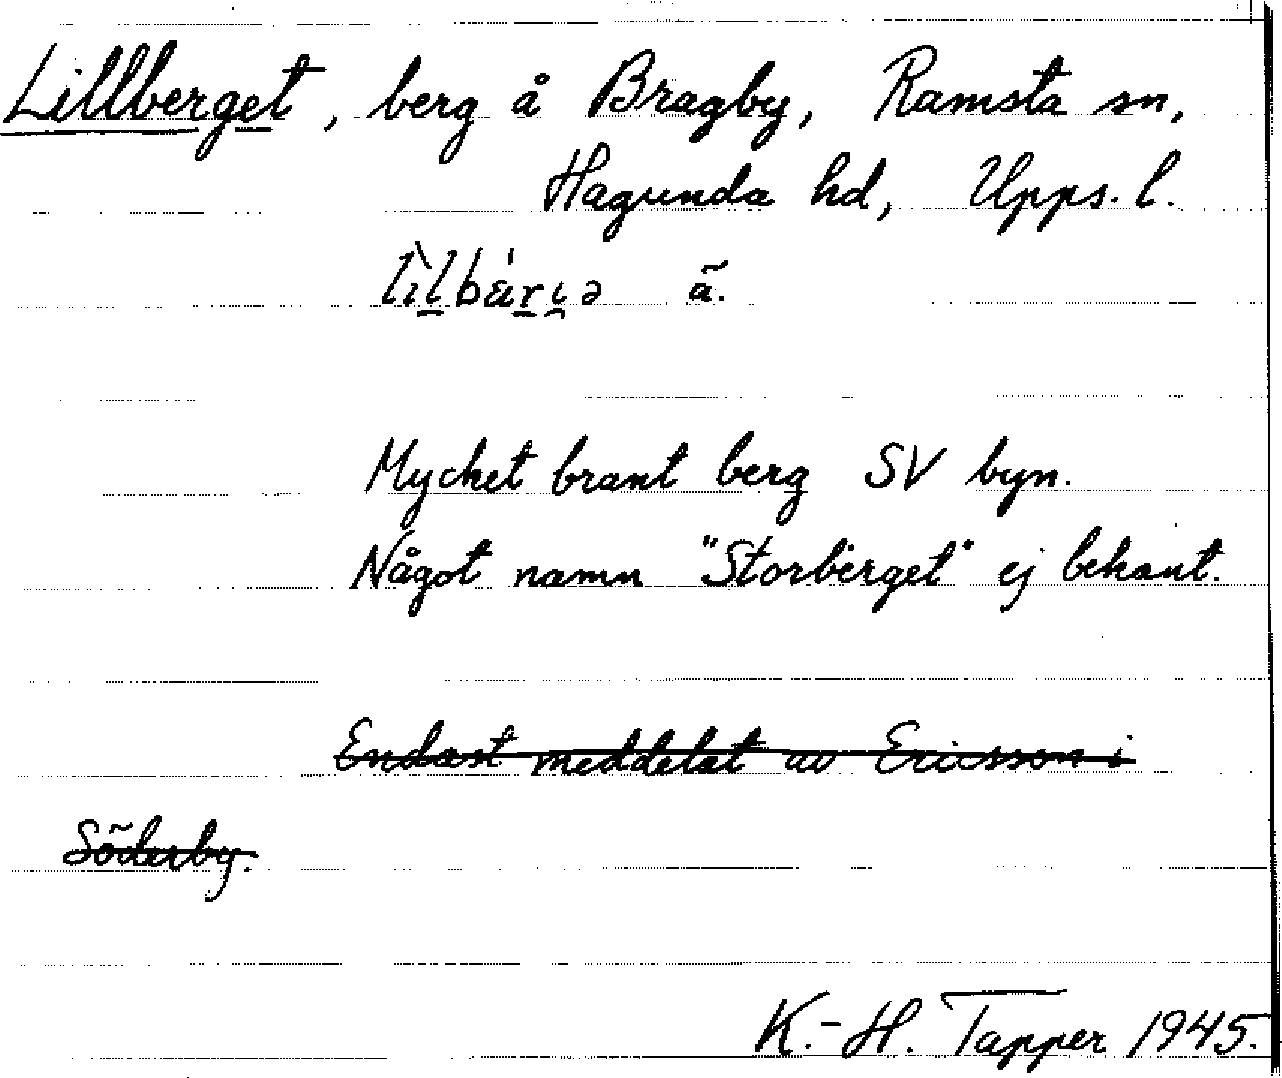 Lillberget, berg å Bragby, Ramsta sn,
Hagunda hd, Upps. l.
ã.
Mycket brant berg SV byn.
Något namn "Storberget" ej bekant.
Endast meddelat av Ericsson i
Söderby.
K.-H. Tapper 1945.